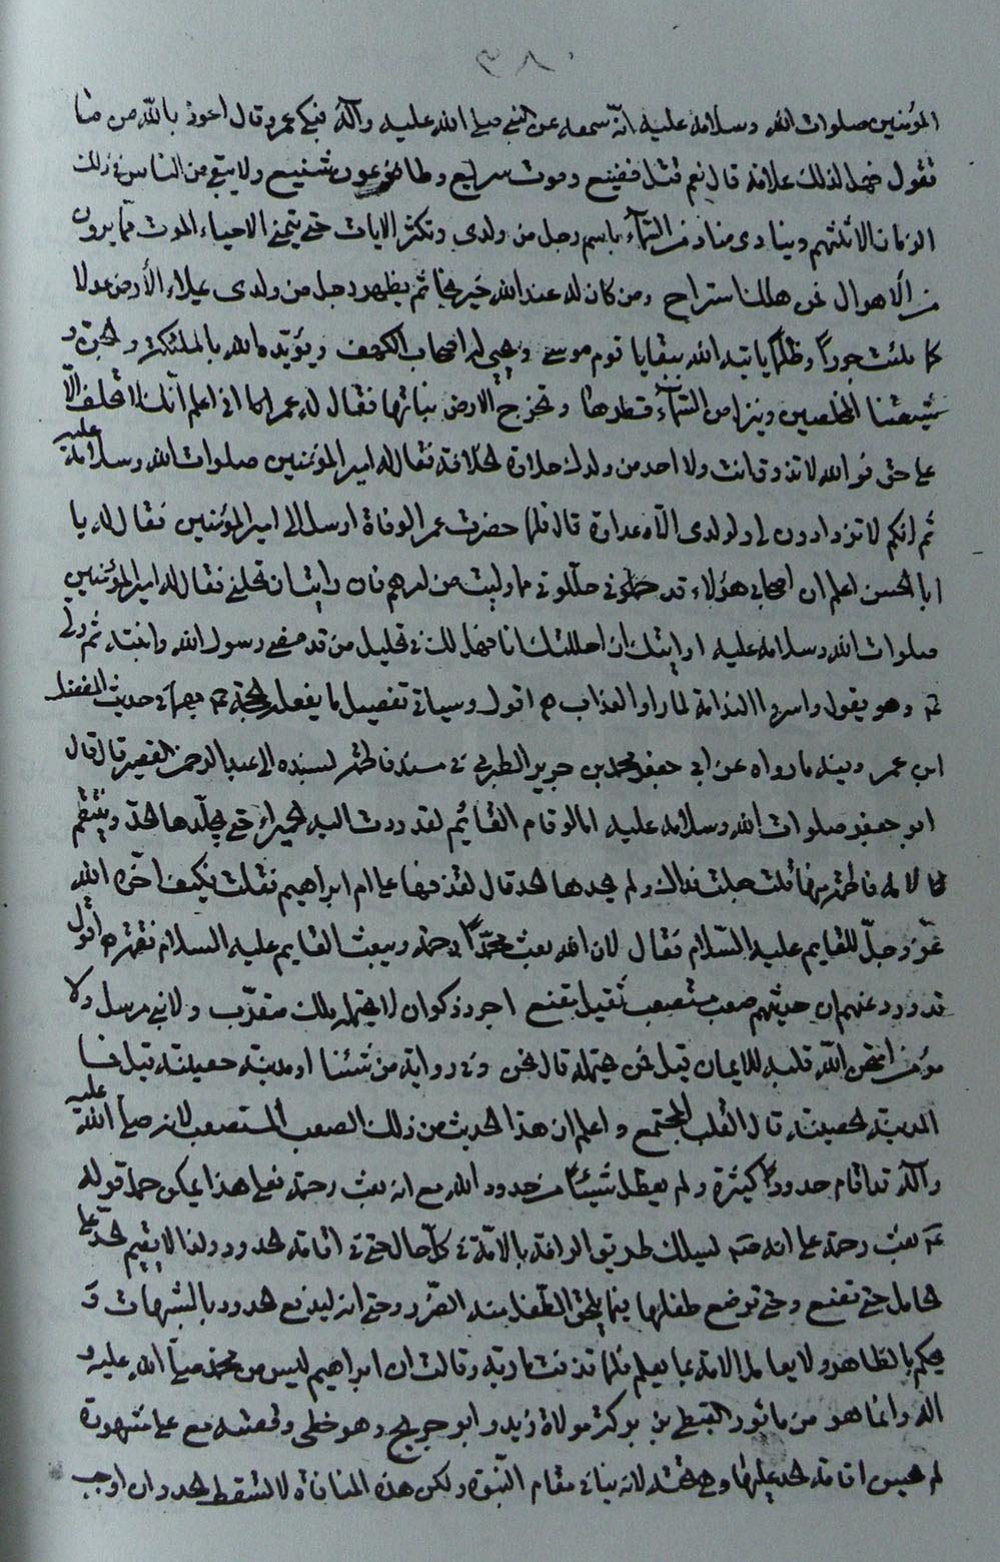 المؤمنين صلوات الله وسلامه عليه انّه سمعه عن النبي صلى الله عليه وآله فبكى عمر وقال اعوذ بالله من ما
تقول فهل لذلك علامة قال نعم قتل فضيع وموت سريع وطاعون شنيع ولا يبقى من الناس في ذلك
الزمان الا ثلثهم وينادى مناد من السّماء باسم رجل من ولدى وتكثر الايات حتى يتمنى الاحياء الموت ممّا يرون
من الاهوال فمن هلك استراح ومن كان له عند الله خير نجا ثم يظهر رجل من ولدى يملاء الأرض عدلا
كما ملئت جوراً وظلماً ياتيه الله ببقايا قوم موسى ويحيى له اصحاب الكهف ويؤيّده الله بالملئكة والجن و
شيعتنا المخلصين وينزل من السّماء قطرها وتخرج الارض نباتها فقال له عمر اما انى اعلم انّك لا تحلف الّا
على حق فو الله لا تذوق انت ولا احد من ولدك حلاوة الخلافة فقال له امير المؤمنين صلوات الله وسلامه عليه
ثم انكم لا تزدادون لى ولولدى الّا عداوة قال فلما حضرت عمر الوفاة ارسل الى امير المؤمنين فقال له يا
ابا الحسن اعلم ان اصحابى هؤلاء قد حللونى مما وليت من امرهم فان رايت ان تحللنى فقال له امير المؤمنين
صلوات الله وسلامه عليه ارايتك ان احللتك انا فهل لك في تحليل من قد مضى رسول الله وابنته ثم ولى
وهو يقول واسروا الندامة لما راوا العذاب اقول وسياتى تفصيل ما يفعله الحجة في حديث المفضل
ابن عمر ومنه ما رواه عن ابى جعفر محمد بن جرير الطبرى في مسند فاطمة بسنده الى عبد الرحمن القصير قال قال
ابو جعفر صلوات الله وسلامه عليه اما لو قام القائم لقد ردت اليه الحميراء حتى يجلّدها الحدّ وينتقم
لامه فاطمة منها قلت جعلت فداك ولم يجلدها الحد قال لقذفها على ام ابراهيم فقلت فكيف اخّره الله
عزّ وجلّ للقايم عليه السّلام فقال لان الله بعث محمّداً رحمة ويبعث القايم عليه السلام نقمة اقول
قد ورد عنهم ان حديثهم صعب مستصعب ثقيل مقنع اجرد ذكوان لا يحتمله ملك مقرّب ولا نبى مرسل ولا
مؤمن امتحن اللّه قلبه للايمان قيل فمن يحتمله قال نحن وفي رواية من شئنا او مدينة حصينة قيل فما
المدينة الحصينة قال القلب المجتمع واعلم ان هذا الحديث من ذلك الصعب المستصعب لانه صلى اللّه عليه
وآله قد اقام حدوداً كثيرة ولم يعطل شيئاً من حدود الله مع انه بعث رحمة فعلى هذا يمكن حمل قوله
بعث رحمة على انه ليسلك طريق الرافة بالامّة في كلّ حال حتى في اقامة الحدود ولذا لا يقيم الحدّ على
الحامل حتى تضع وحتى ترضع طفلها فيما يلحق الطّفل منه الضّرر وحتى انه ليدفع الحدود بالشبهات و
يحكم بالظاهر ولا يعامل الامة بما يعلم فلما قذفت مارية وقالت ان ابراهيم ليس من محمد صلّى الله عليه و
اله وانما هو من مابور القبطى بن بوكرة مولاة زيد وابو جريج وهو خصى وقصته مع على مشهورة
لم يحسن اقامة الحد عليها وهى تحته لانه ينافى مقام النّبوة ولكن هذه المنافاة لا تسقط الحد وان اوجب